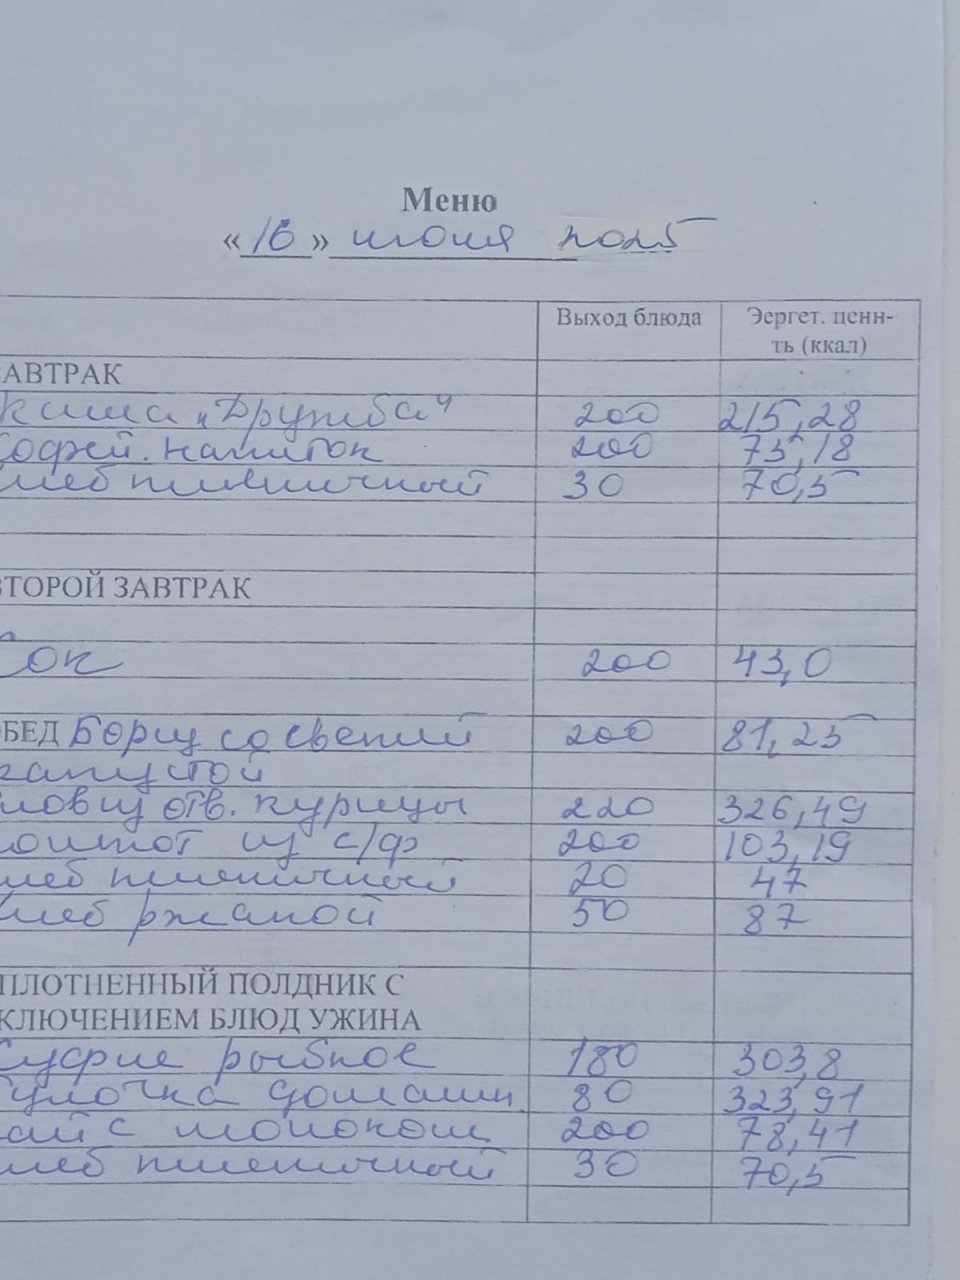 Меню
«16» июня 2025
Выход блюда Эергет. ценн-
ть (ккал)
ЗАВТРАК
Каша „Дружба" 200 215,28
Кофей. напиток 200 75,18
хлеб пшеничный 30 70,5
ВТОРОЙ ЗАВТРАК
Сок 200 43,0
ОБЕД Борщ со свежий 200 81,25
капустой
плов из отв. курицы 220 326,49
компот из с/ф 200 103,19
хлеб пшеничный 20 47
хлеб ржаной 50 87
УПЛОТНЕННЫЙ ПОЛДНИК С
ВКЛЮЧЕНИЕМ БЛЮД УЖИНА
Суфле рыбное 180 303,8
Булочка домашн. 80 323,91
чай с молоком 200 78,41
хлеб пшеничный 30 70,5